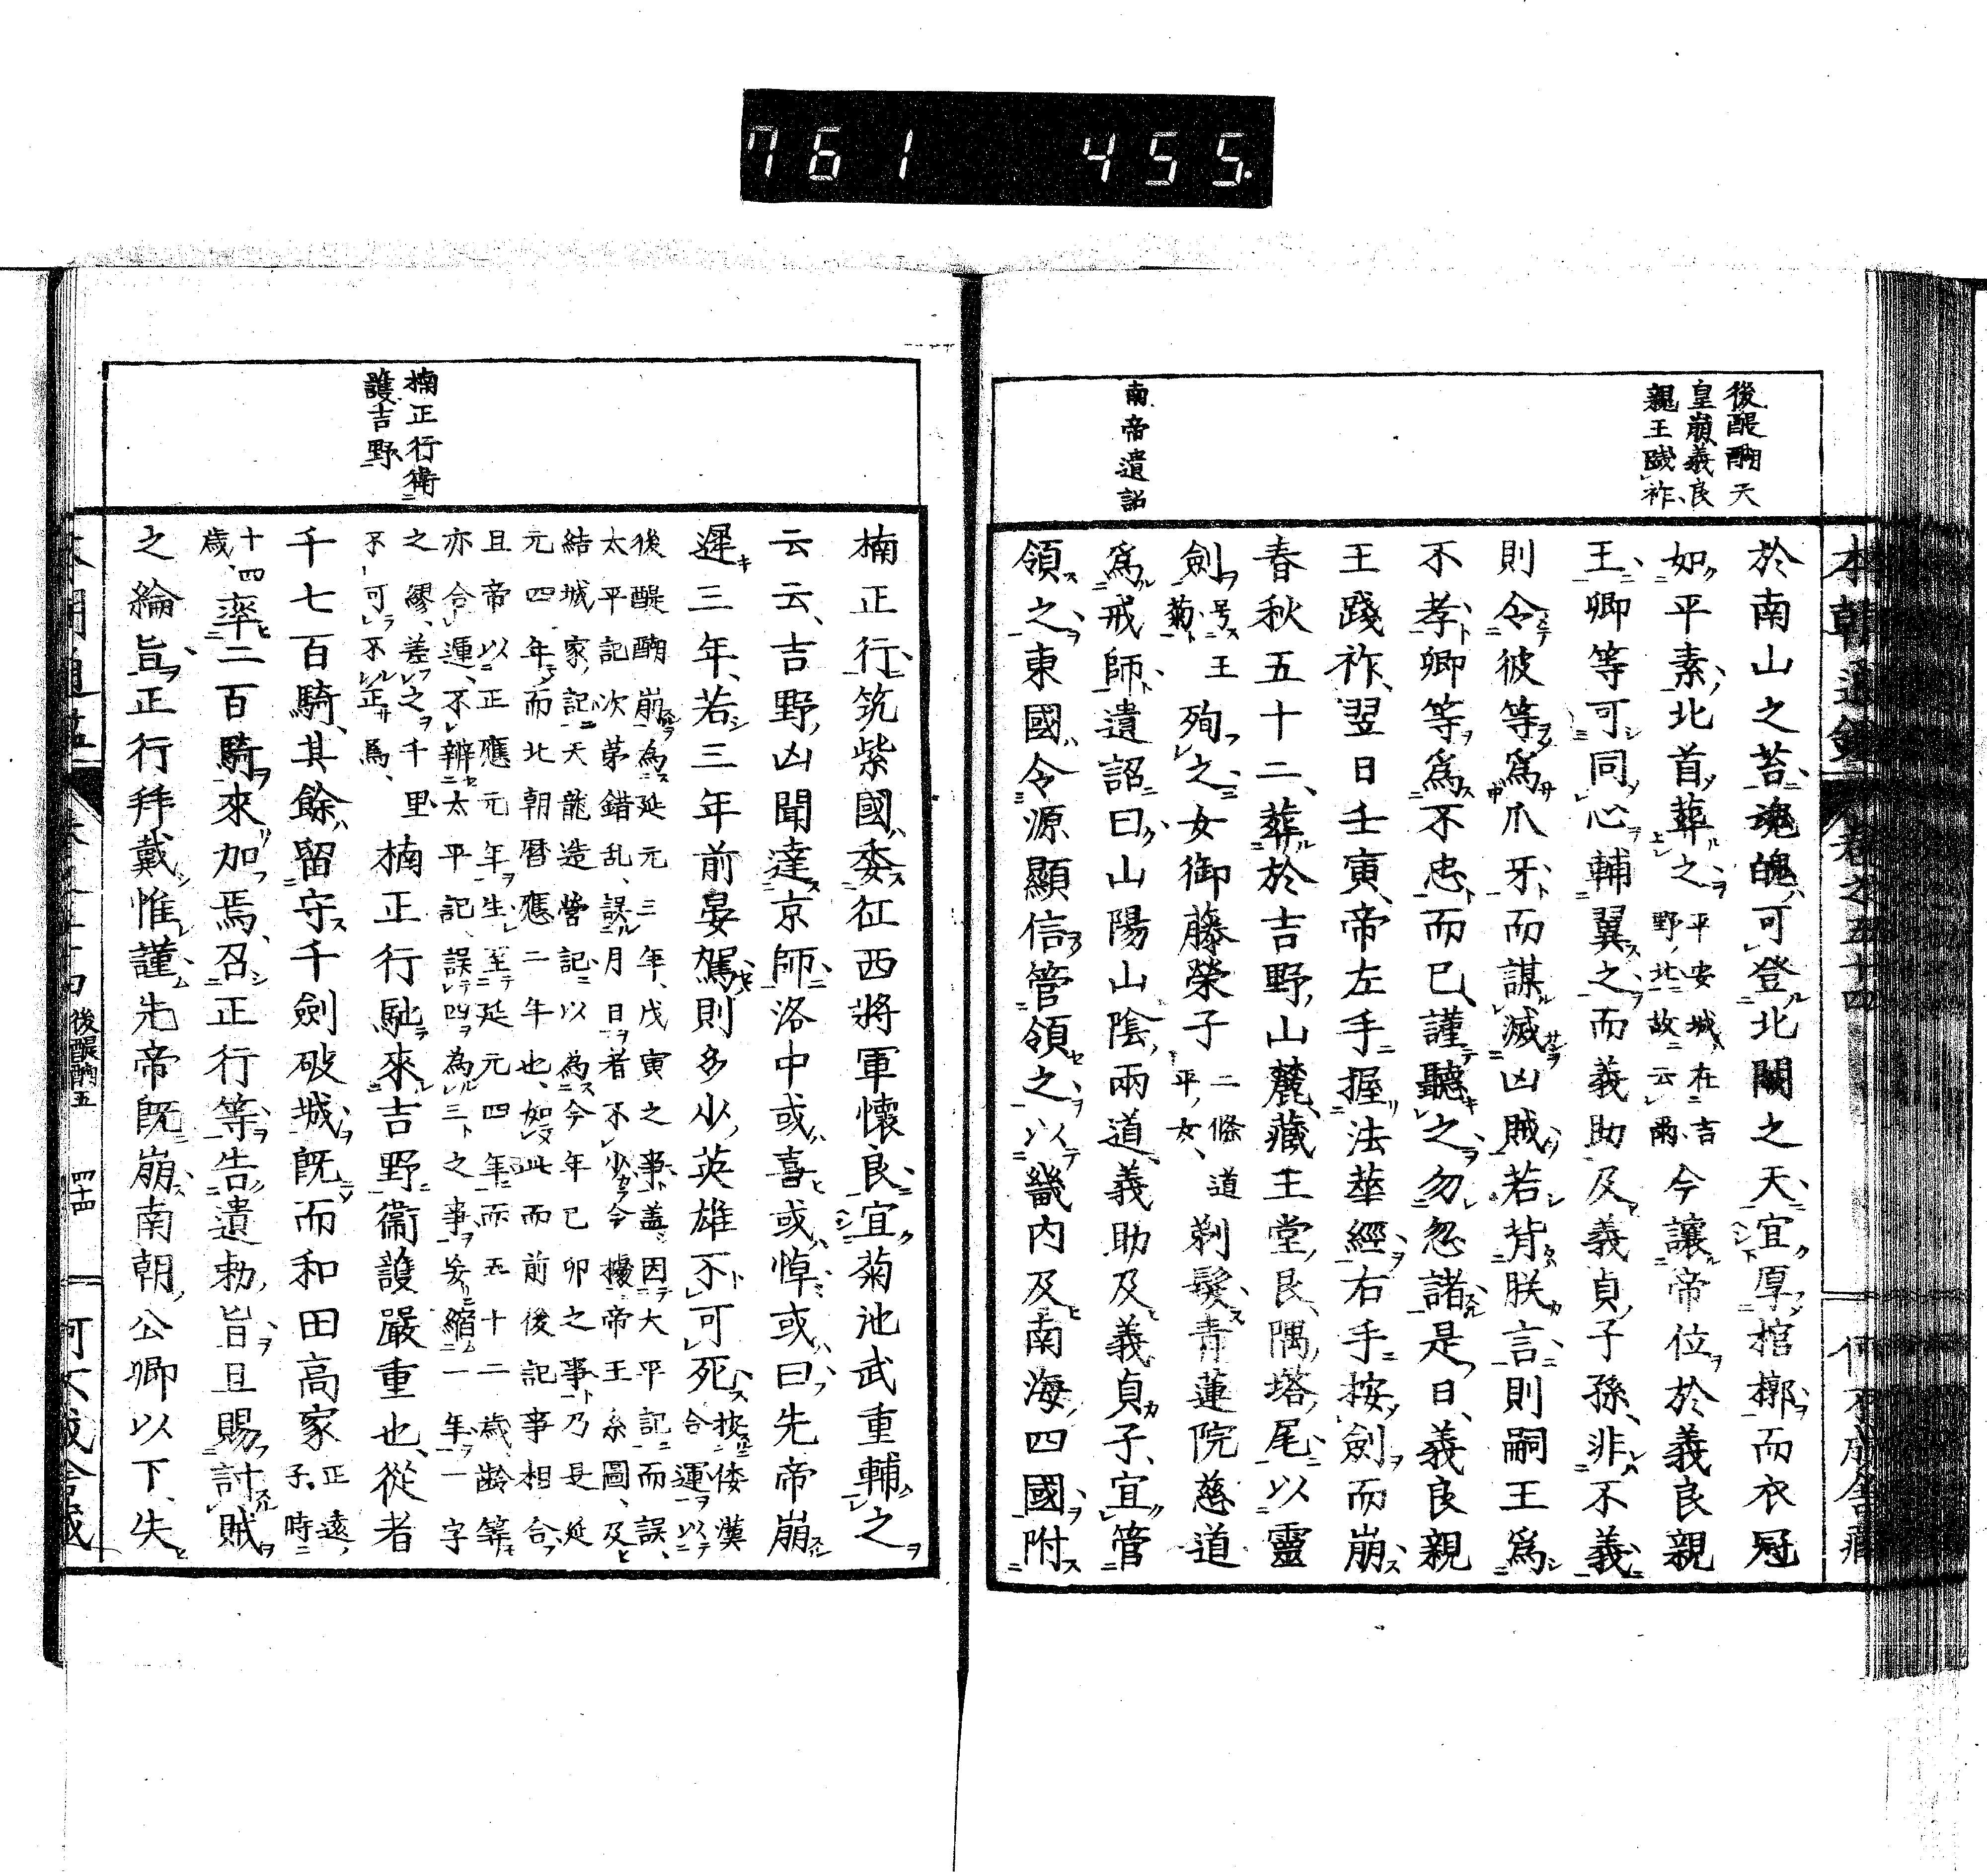 761 455.
後醍醐天
皇崩義良
親王踐祚
南帝遺詔
於南山之苔魂魄可登北闕之天宜厚棺槨而衣冠
如平素北首葬之平安城在吉野北故云爾今讓帝位於義良親
王卿等可同心輔翼之而義助及義貞子孫非不義
則令彼等爲爪牙而謀滅凶賊若背朕言則嗣王爲
不孝卿等爲不忠而已謹聽之勿忽諸是日義良親
王踐祚翌日壬寅帝左手握法華經右手按劍而崩
春秋五十二葬於吉野山麓藏王堂艮隅塔尾以靈
劍号菊王殉之女御藤榮子二條道平女剃髮青蓮院慈道
爲戒師遺詔曰山陽山陰兩道義助及義貞子宜管
領之東國令源顯信管領之以畿內及南海四國附
楠正行衛
護吉野
楠正行筑紫國委征西將軍懷良宜菊池武重輔之
云云吉野凶聞達京師洛中或喜或悼或曰先帝崩
遲三年若三年前晏駕則多少英雄不可死按倭漢合運以
後醍醐崩爲延元三年戊寅之事蓋因大平記而誤
太平記次第錯乱誤月日者不少今據帝王系圖及
結城家記天龍造營記以爲今年己卯之事乃是延
元四年而北朝暦應二年也如此而前後記事相合
且帝以正應元年生至延元四年而五十二歲齡等
亦合運不辨太平記誤四爲三之事妄縮一年一字
之繆差之千里不可不正焉楠正行馳來吉野衞護嚴重也從者
千七百騎其餘留守千劍破城既而和田高家正遠子時
十四歲率二百騎來加焉召正行等告遺勅旨且賜討賊
之綸旨正行拜戴惟謹先帝既崩南朝公卿以下失
後醍醐五 四十四